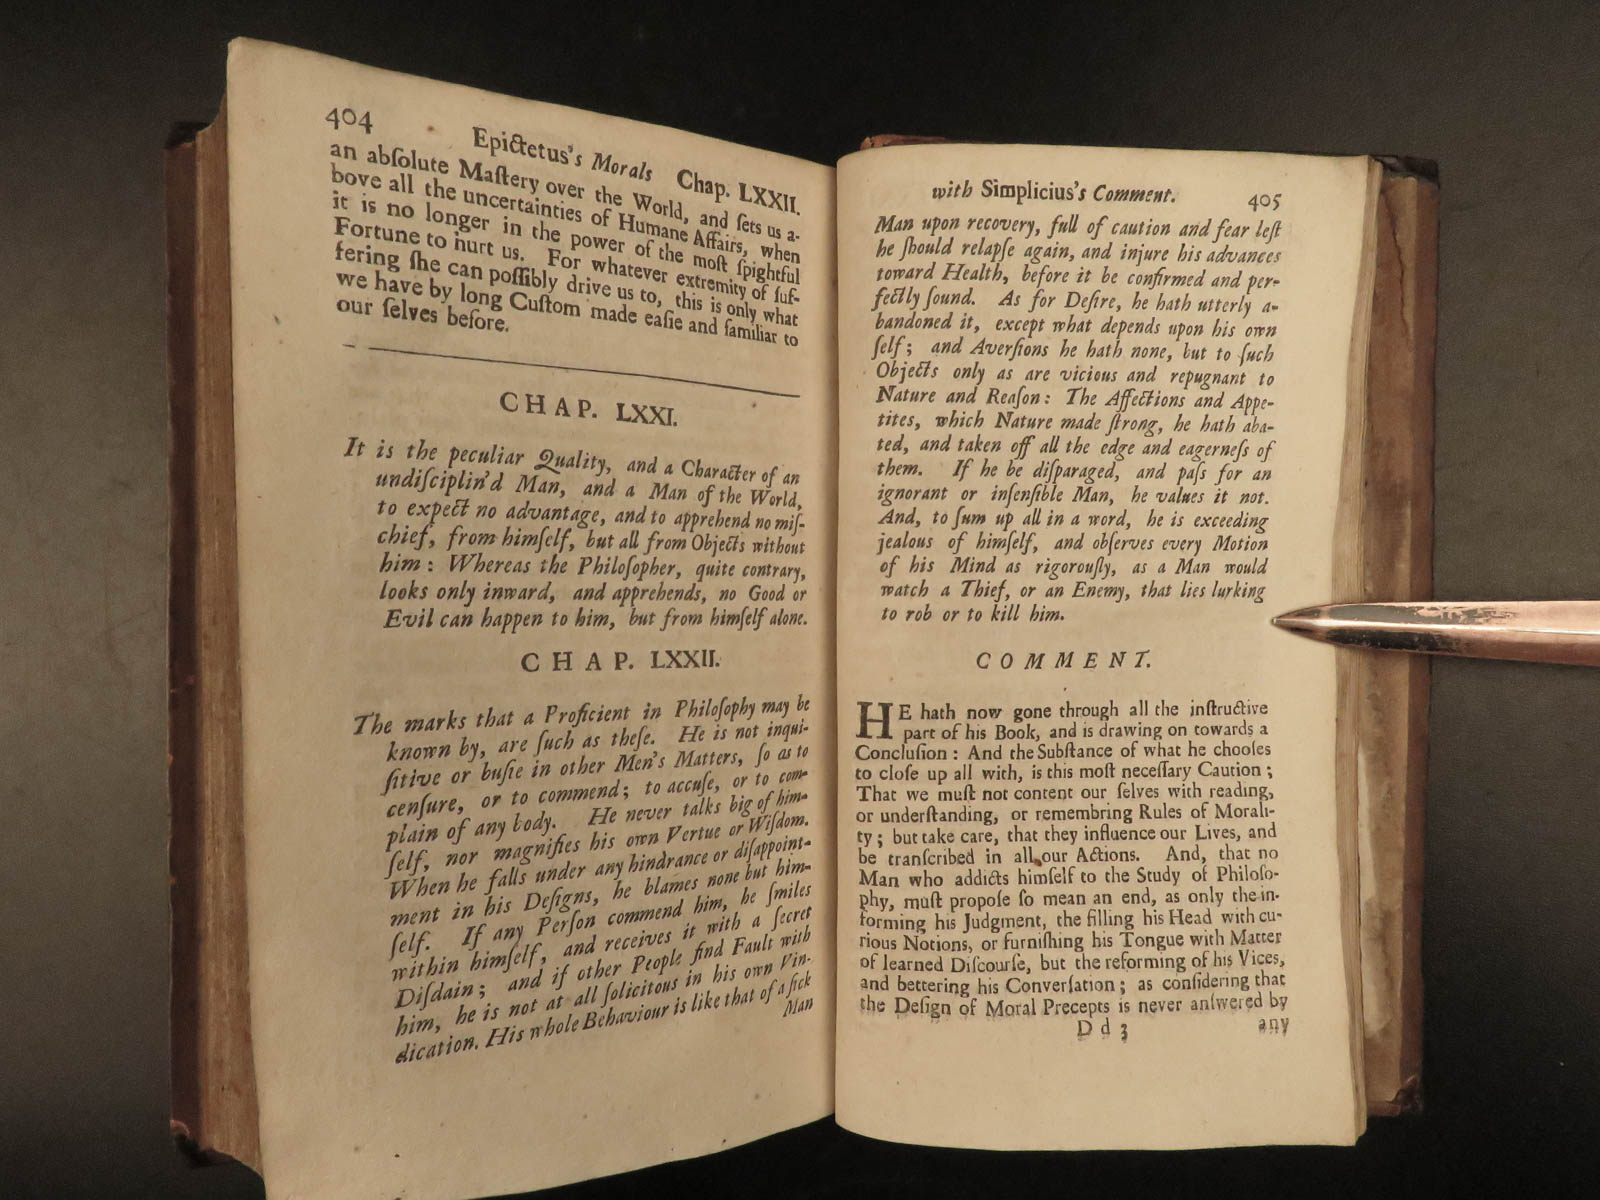 404
Epictetus's Morals Chap. LXXII.
an abſolute Maſtery over the World, and ſets us a-
bove all the uncertainties of Humane Affairs, when
it is no longer in the power of the moſt ſpightful
Fortune to hurt us. For whatever extremity of ſuf-
fering ſhe can poſſibly drive us to, this is only what
we have by long Cuſtom made eaſie and familiar to
our ſelves before.
CHAP. LXXI.
It is the peculiar Quality, and a Character of an
undiſciplin'd Man, and a Man of the World,
to expect no advantage, and to apprehend no miſ-
chief, from himſelf, but all from Objects without
him: Whereas the Philoſopher, quite contrary,
looks only inward, and apprehends, no Good or
Evil can happen to him, but from himſelf alone.
CHAP. LXXII.
The marks that a Proficient in Philoſophy may be
known by, are ſuch as theſe. He is not inqui-
ſitive or buſie in other Men's Matters, ſo as to
cenſure, or to commend; to accuſe, or to com-
plain of any body. He never talks big of him-
ſelf, nor magnifies his own Vertue or Wiſdom.
When he falls under any hindrance or diſappoint-
ment in his Deſigns, he blames none but him-
ſelf. If any Perſon commend him, he ſmiles
within himſelf, and receives it with a ſecret
Diſdain; and if other People find Fault with
him, he is not at all ſolicitous in his own Vin-
dication. His whole Behaviour is like that of a ſick
Man
with Simplicius's Comment. 405
Man upon recovery, full of caution and fear leſt
he ſhould relapſe again, and injure his advances
toward Health, before it be confirmed and per-
fectly ſound. As for Deſire, he hath utterly a-
bandoned it, except what depends upon his own
ſelf; and Averſions he hath none, but to ſuch
Objects only as are vicious and repugnant to
Nature and Reaſon: The Affections and Appe-
tites, which Nature made ſtrong, he hath aba-
ted, and taken off all the edge and eagerneſs of
them. If he be diſparaged, and paſs for an
ignorant or inſenſible Man, he values it not.
And, to ſum up all in a word, he is exceeding
jealous of himſelf, and obſerves every Motion
of his Mind as rigorouſly, as a Man would
watch a Thief, or an Enemy, that lies lurking
to rob or to kill him.
COMMENT.
HE hath now gone through all the inſtructive
part of his Book, and is drawing on towards a
Concluſion: And the Subſtance of what he chooſes
to cloſe up all with, is this moſt neceſſary Caution;
That we muſt not content our ſelves with reading,
or underſtanding, or remembring Rules of Morali-
ty; but take care, that they influence our Lives, and
be tranſcribed in all our Actions. And, that no
Man who addicts himſelf to the Study of Philoſo-
phy, muſt propoſe ſo mean an end, as only the in-
forming his Judgment, the filling his Head with cu-
rious Notions, or furniſhing his Tongue with Matter
of learned Diſcourſe, but the reforming of his Vices,
and bettering his Converſation; as conſidering that
the Deſign of Moral Precepts is never anſwered by
D d 3 any